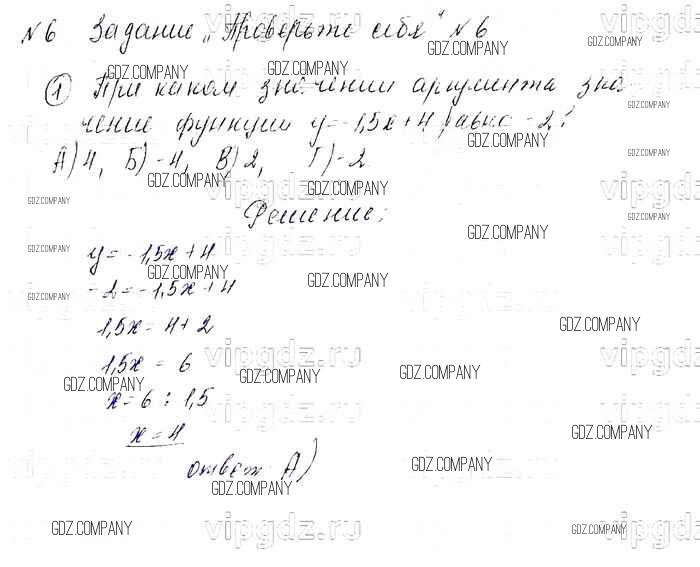 №6 Задание „Проверьте себя" №6
① При каком значении аргумента зна
чение функции y=-1,5x+4 равно -2?
А) 4, Б) -4, В) 2, Г) -2
Решение:
y=-1,5x+4
-2=-1,5x+4
1,5x=4+2
1,5x = 6
x=6:1,5
x=4
ответ А)
vipgdz.ru
GDZ.COMPANY